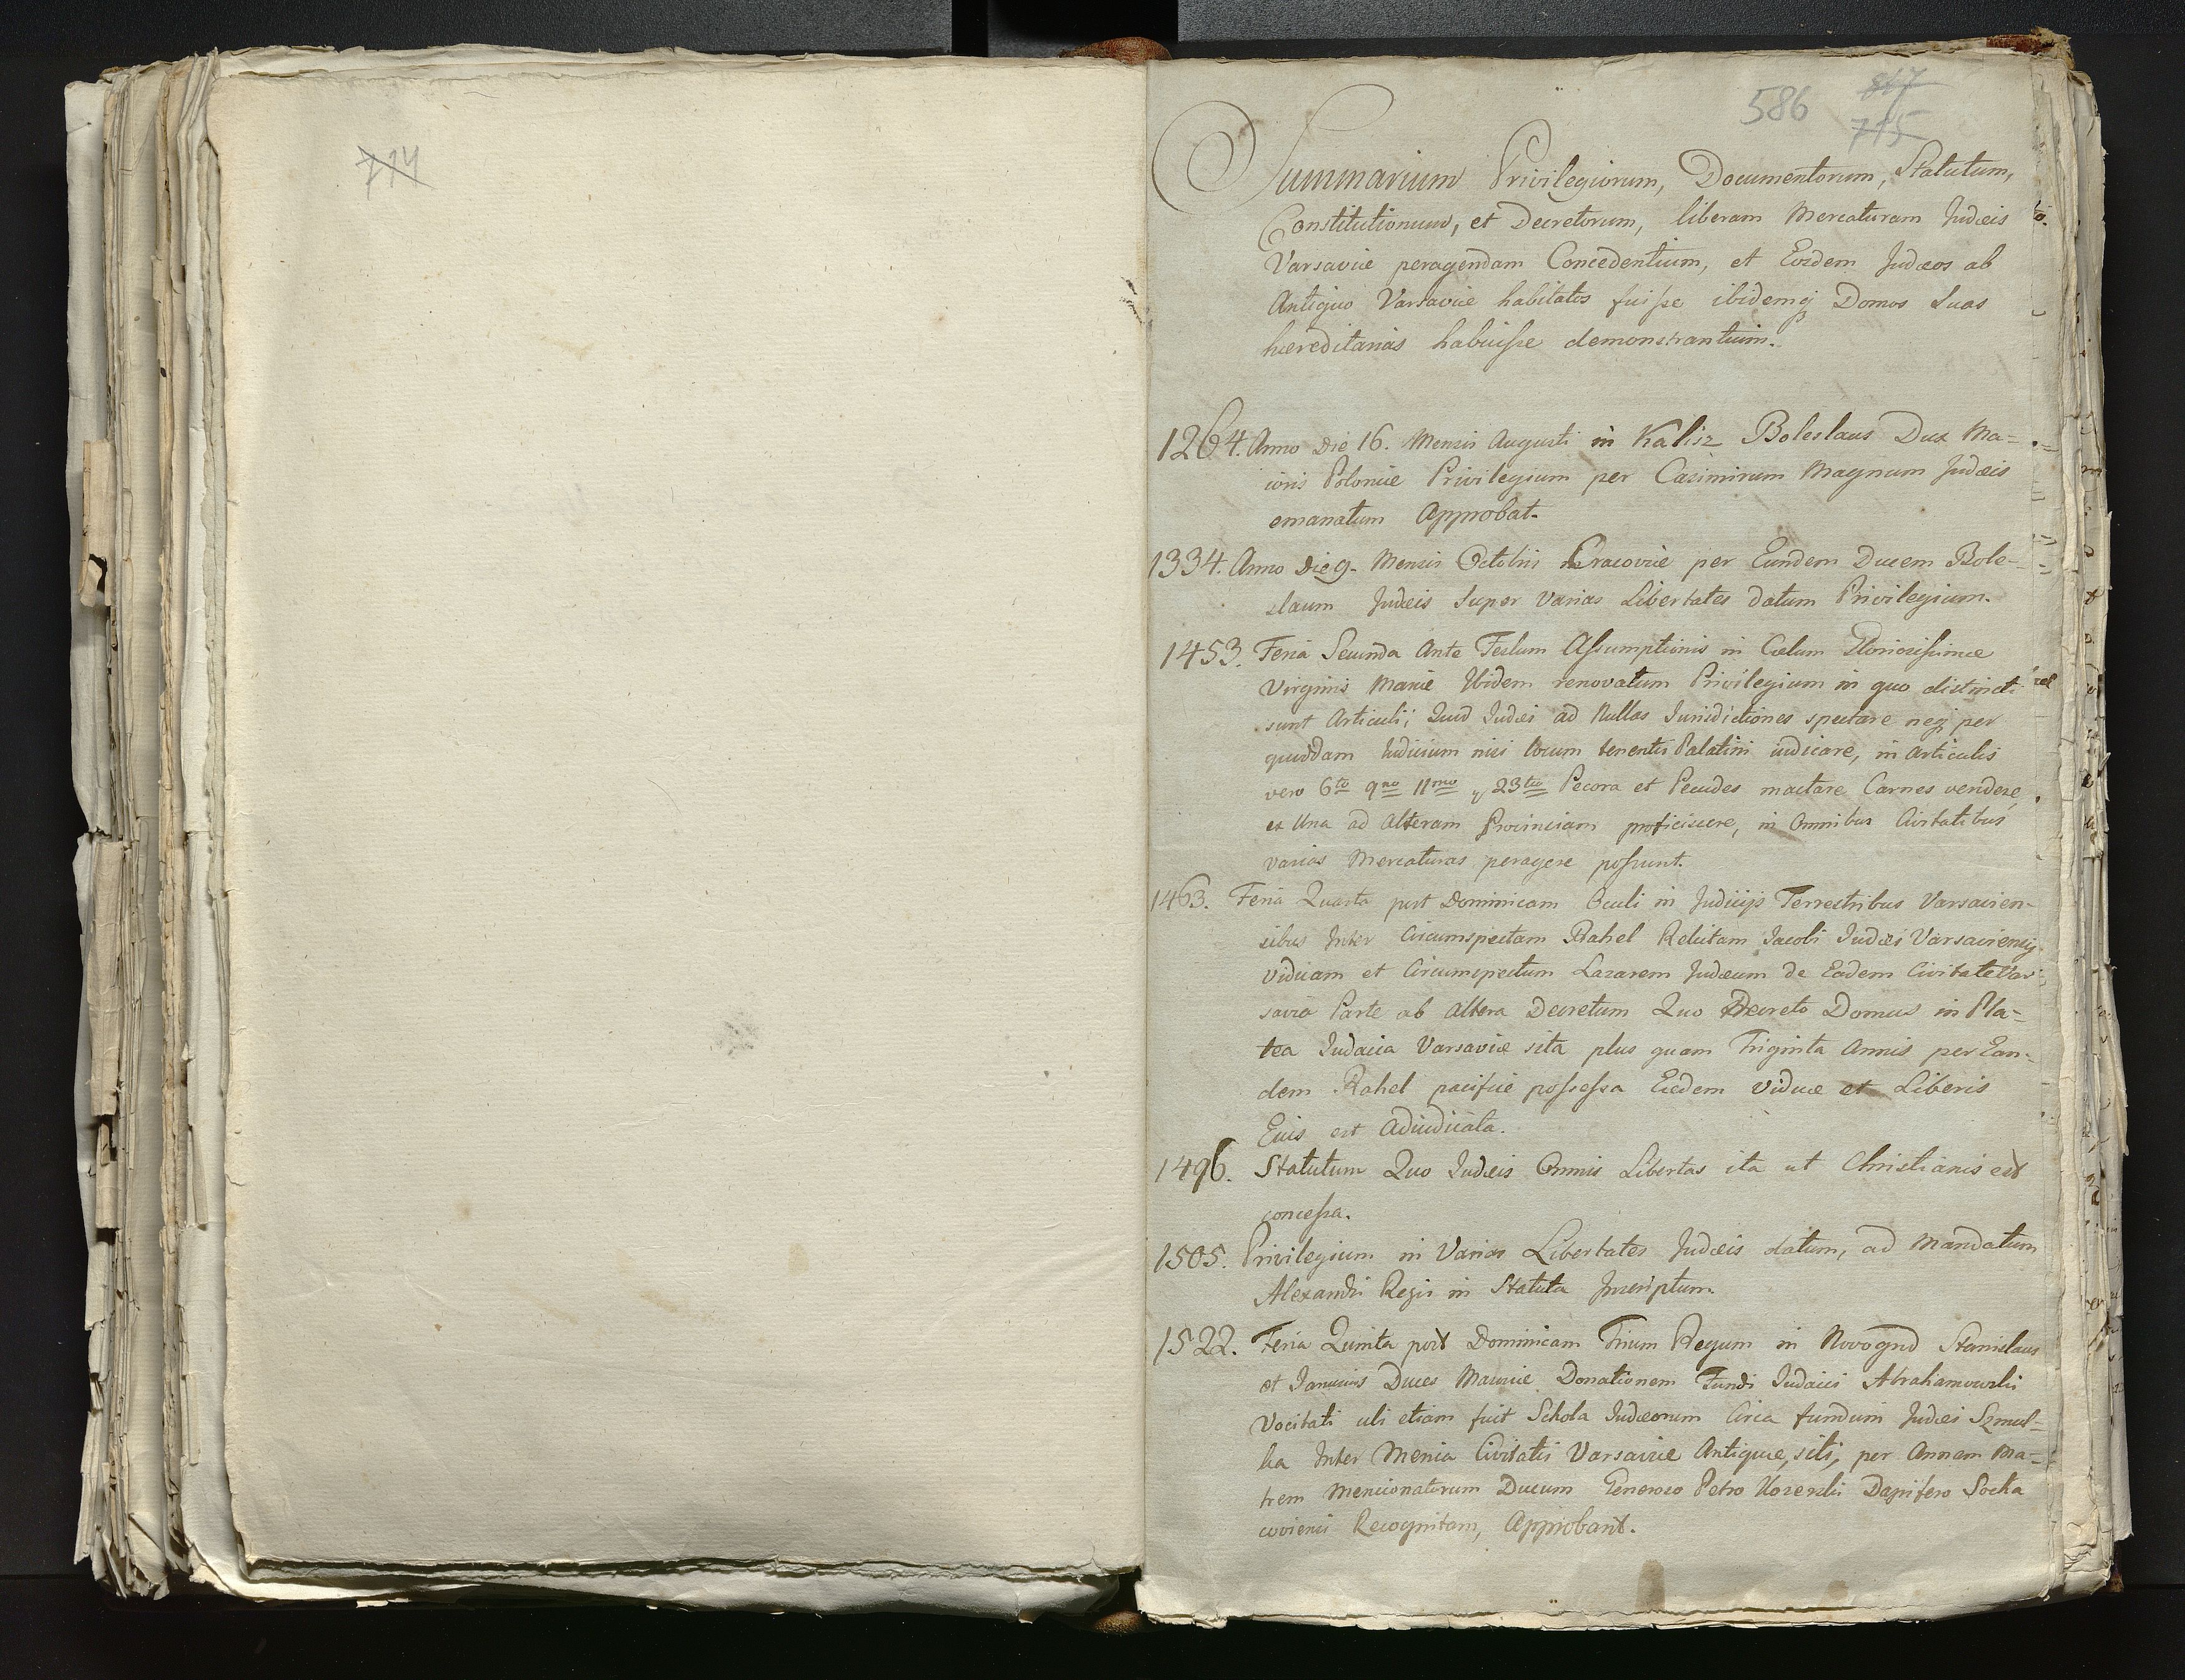 714
586 817
715
Summarium Privilegiorum, Documentorum, Statutum,
Constitutionum, et Decretorum, liberam Mercaturam Judæis
Varsaviæ peragendam Concedentium, et Eosdem Judæos ab
Antiquo Varsaviæ habitatos fuisse ibidemq Domos Suas
hæreditarias habuisse demonstrantium.
1264. Anno Die 16. Mensis Augusti in Kalisz Boleslaus Dux Ma=
ioris Poloniæ Privilegium per Casimirum Magnum Judæis
emanatum Approbat.
1334. Anno Die 9. Mensis Octobris Cracoviæ per Eundem Ducem Bole-
slaum Judæis Super Varias Libertates datum Privilegium.
1453. Feria Secunda Ante Festum Assumptionis in Cœlum Gloriosissimæ
Virginis Mariæ Ibidem renovatum Privilegium in quo distincti
sunt Articuli; Quod Judæi ad Nullas Jurisdictiones spectare neq per
quoddam Judicium nisi locum tenentis Palatini iudicare, in Articulis
vero 6to 9no 11mo y 23tio Pecora et Pecudes mactare Carnes vendere,
ex Una ad Alteram Provinciam proficiscere, in Omnibus Civitatibus
varias Mercaturas peragere possunt.
1463. Feria Quarta post Dominicam Oculi in Judicijs Terrestribus Varsavien-
sibus Inter Circumspectam Rahel Relictam Jacobi Judæi Varsaviensis
Viduam et Circumspectum Lazarem Judæum de Eadem Civitate Var-
savia Parte ab Altera Decretum Quo Decreto Domus in Pla=
tea Judaica Varsaviæ sita plus quam Triginta Annis per Ean-
dem Rahel pacifice possessa Eidem Viduæ et Liberis
Eius est Adiudicata.
1496. Statutum Quo Judæis Omnis Libertas ita ut Christianis est
concessa.
1505. Privilegium in Varias Libertates Judæis datum, ad Mandatum
Alexandri Regis in Statuta Inscriptum.
1522. Feria Quinta post Dominicam Trium Regum in Novogrod Stanislaus
et Janusius Duces Mazoviæ Donationem Fundi Judaici Abrahamowski
Vocitati ubi etiam fuit Schola Judæorum Circa fundum Judæi Szmul=
ka Inter Menia Civitatis Varsaviæ Antiquæ, siti, per Annam Ma=
trem Mencionatorum Ducum Generoso Petro Dapifero Socha
coviensi Recognitam, Approbant.